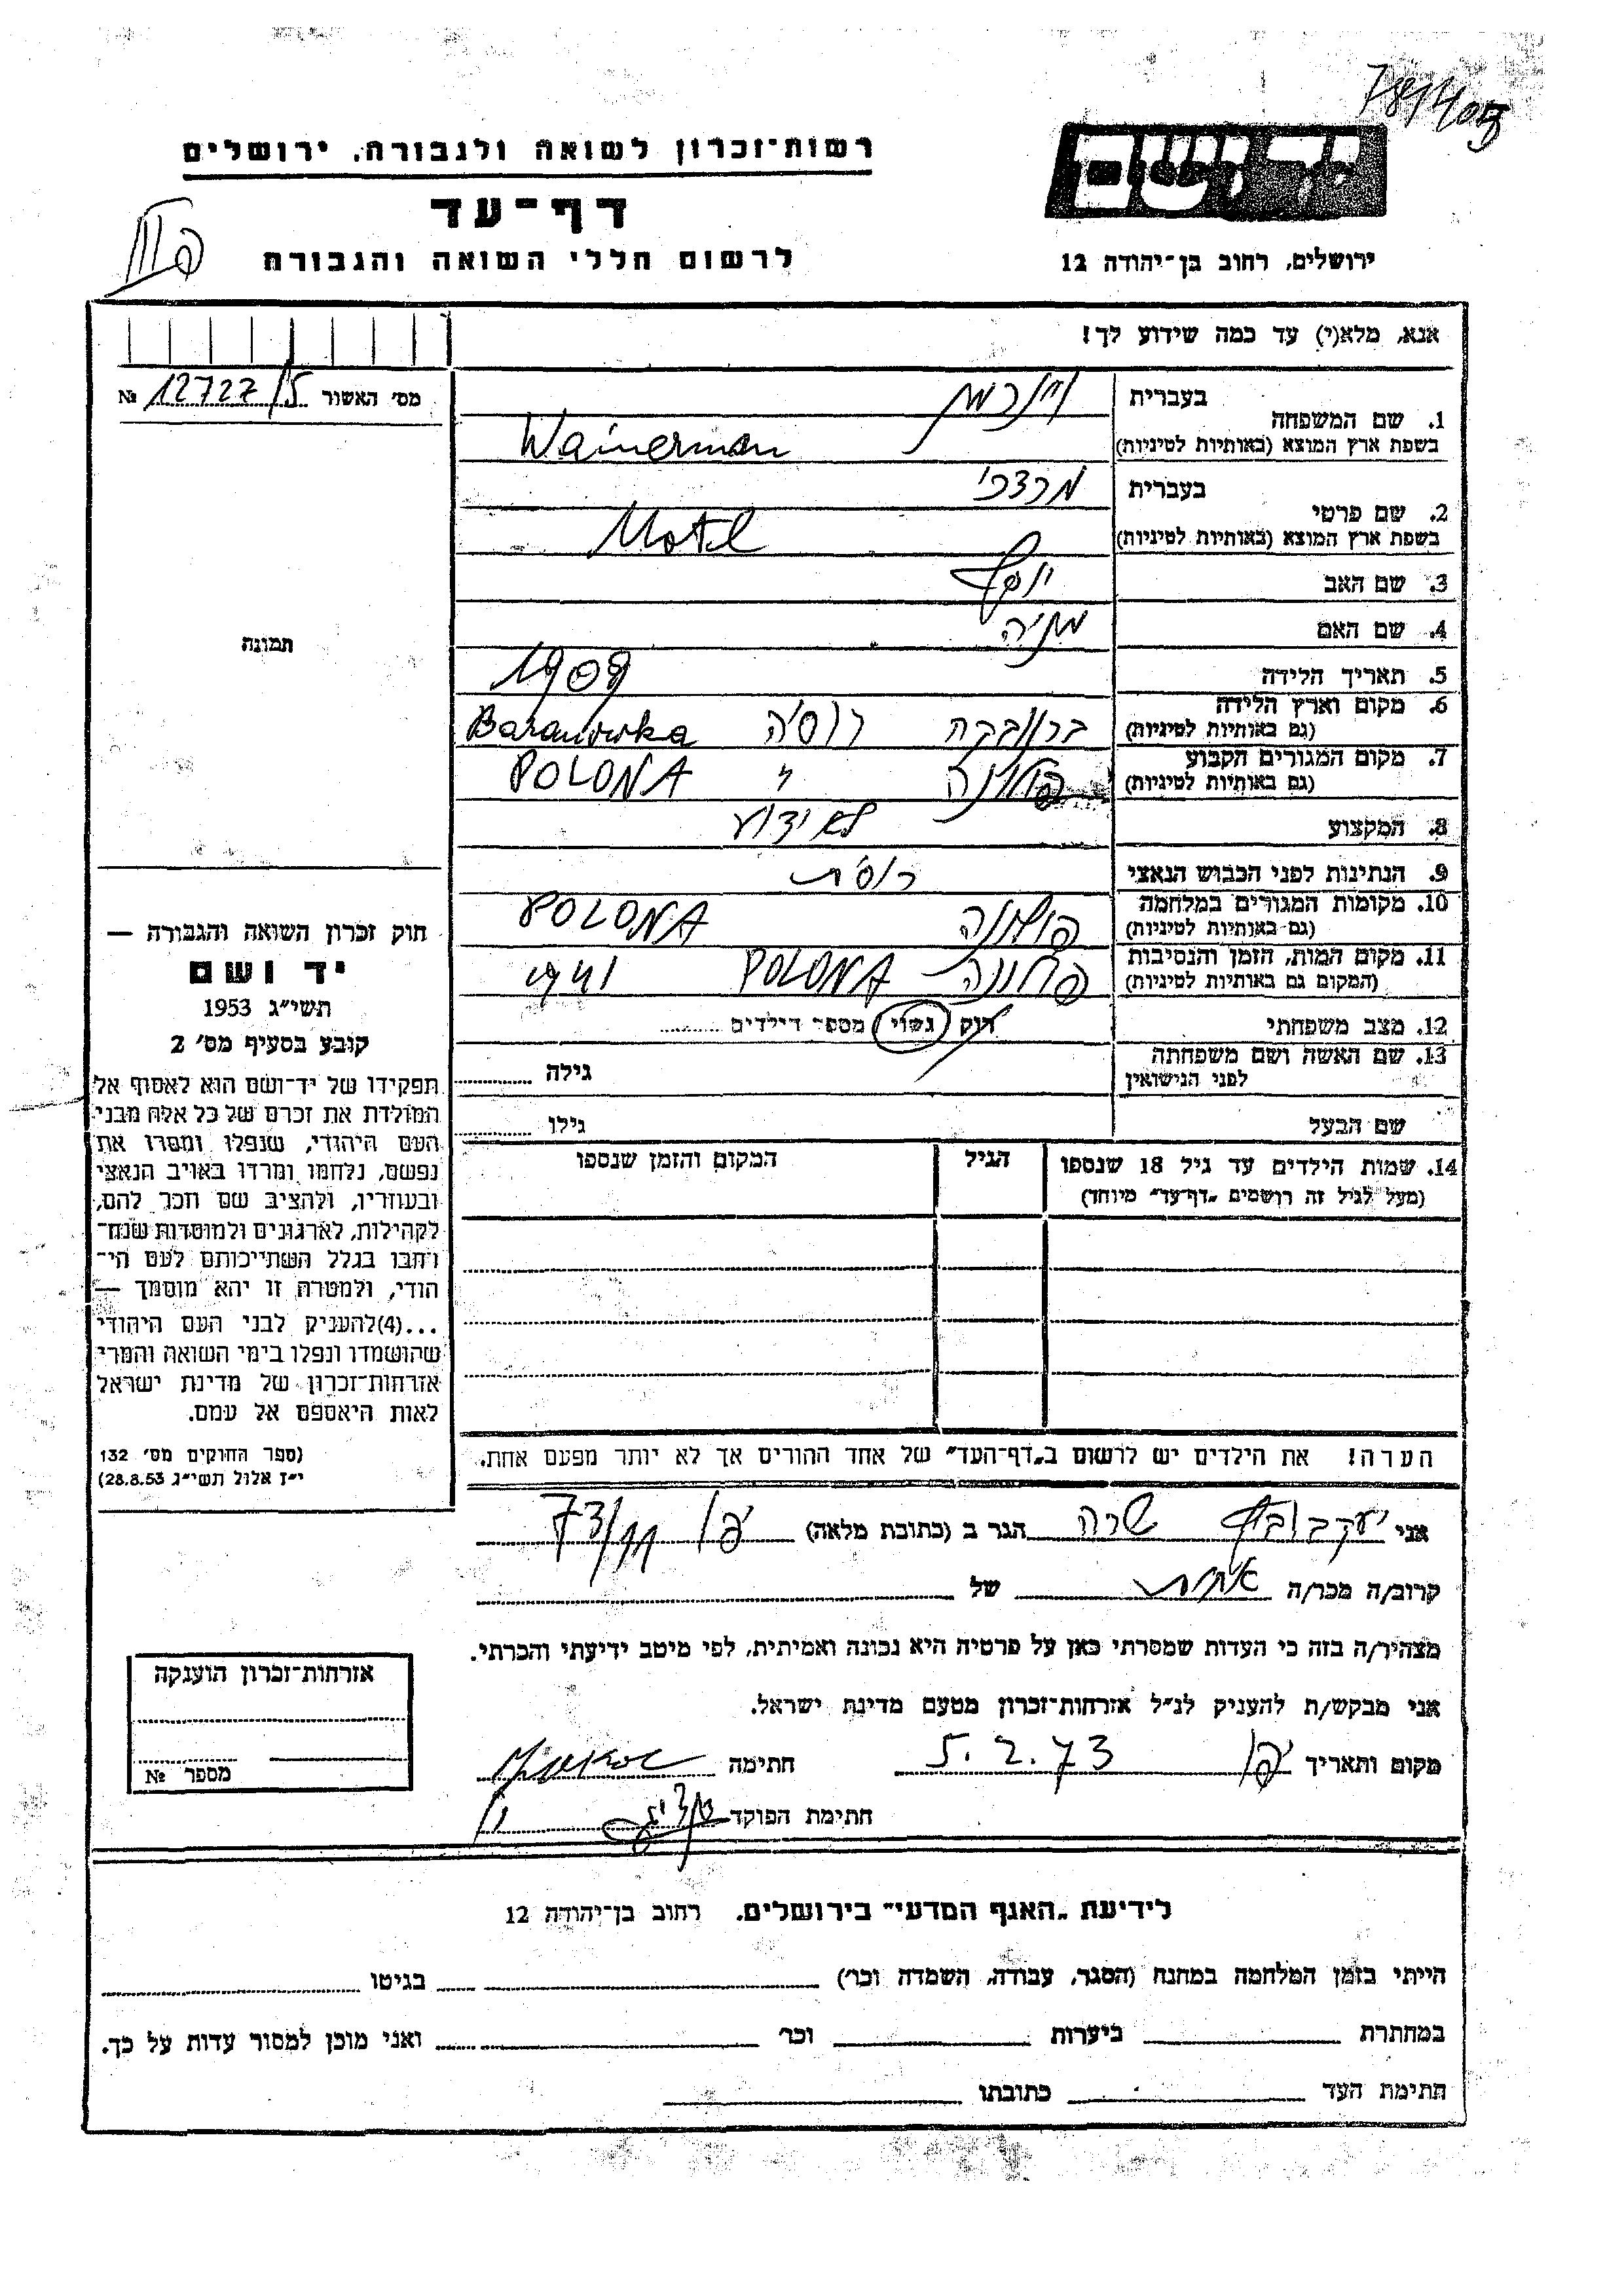 784405
יד ושם
רשות-זכרון לשואה ולגבורה, ירושלים
דף-עד
לרשום חללי השואה והגבורה
ירושלים, רחוב בן-יהודה 12
אנא, מלא(י) עד כמה שידוע לך!
מס׳ האשור 12727/5 №
1. שם המשפחה
בעברית ויינרמן
בשפת ארץ המוצא (באותיות לטיניות) Wainerman
2. שם פרטי
בעברית מרדכי
בשפת ארץ המוצא (באותיות לטיניות) Motel
3. שם האב יוסף
4. שם האם מניה
תמונה
5. תאריך הלידה 1909
6. מקום וארץ הלידה
(גם באותיות לטיניות) ברנובקה רוסיה Baranowka
7. מקום המגורים הקבוע
(גם באותיות לטיניות) פולונה " POLONA
8. המקצוע לא ידוע
9. הנתינות לפני הכבוש הנאצי רוסית
10. מקומות המגורים במלחמה
(גם באותיות לטיניות) פולונה POLONA
11. מקום המות, הזמן והנסיבות
(המקום גם באותיות לטיניות) פולונה POLONA 1941
12. מצב משפחתי רווק נשוי מספר הילדים
13. שם האשה ושם משפחתה
לפני הנישואין גילה
שם הבעל גילו
14. שמות הילדים עד גיל 18 שנספו
(מעל לגיל זה רושמים „דף-עד״ מיוחד)
הגיל
המקום והזמן שנספו
חוק זכרון השואה והגבורה —
יד ושם
תשי״ג 1953
קובע בסעיף מס׳ 2
תפקידו של יד-ושם הוא לאסוף אל
המולדת את זכרם של כל אלה מבני
העם היהודי, שנפלו ומסרו את
נפשם, נלחמו ומרדו באויב הנאצי
ובעוזריו, ולהציב שם וזכר להם,
לקהילות, לארגונים ולמוסדות שנח-
רבו בגלל השתייכותם לעם הי-
הודי, ולמטרה זו יהא מוסמך —
...(4)להעניק לבני העם היהודי
שהושמדו ונפלו בימי השואה והמרי
אזרחות-זכרון של מדינת ישראל
לאות היאספם אל עמם.
(ספר החוקים מס׳ 132
י״ז אלול תשי״ג 28.8.53)
הערה! את הילדים יש לרשום ב„דף-העד״ של אחד ההורים אך לא יותר מפעם אחת.
אני יעקבוביץ שרה הגר ב (כתובת מלאה) יפו
קרוב/ה מכר/ה אחות של
מצהיר/ה בזה כי העדות שמסרתי כאן על פרטיה היא נכונה ואמיתית, לפי מיטב ידיעתי והכרתי.
אני מבקש/ת להעניק לנ״ל אזרחות-זכרון מטעם מדינת ישראל.
מקום ותאריך יפו 5.2.73 חתימה
חתימת הפוקד
אזרחות-זכרון הוענקה
מספר №
לידיעת „האגף המדעי״ בירושלים, רחוב בן-יהודה 12
הייתי בזמן המלחמה במחנה (הסגר, עבודה, השמדה וכו׳) בגיטו
במחתרת ביערות וכו׳ ואני מוכן למסור עדות על כך.
חתימת העד כתובתו